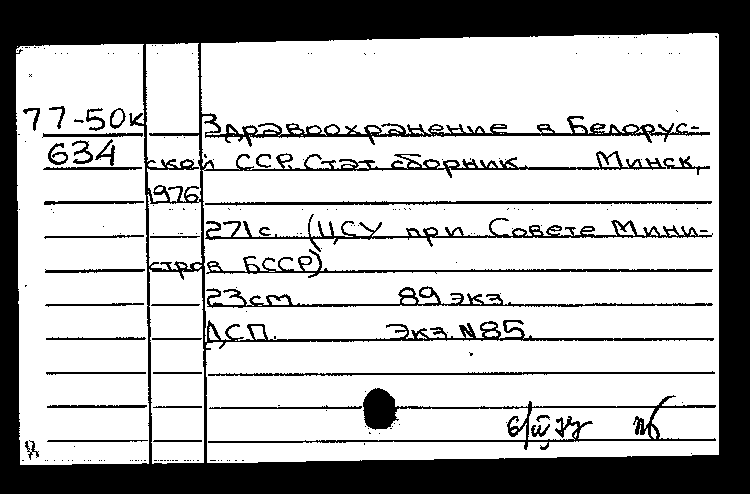 77-50к Здравоохранение в Белорус-
634 ской ССР. Стат. сборник. Минск,
1976
271 с. (ЦСУ при Совете Мини-
стров БССР).
23 см. 89 экз.
ДСП. Экз. N 85.